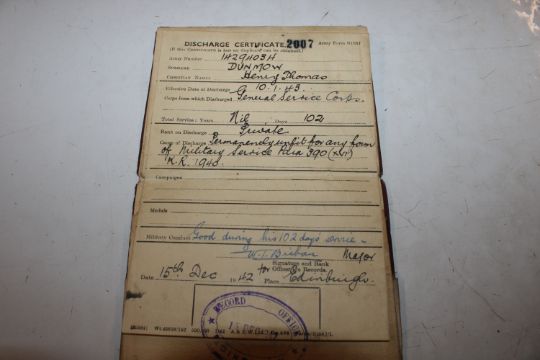 DISCHARGE CERTIFICATE. 2007 Army Form
(If this Certificate is lost no duplicate can be obtained.)
Army Number 14294034
Surname DUNMOW
Christian Names Henry Thomas
Effective Date of Discharge 10.1.43.
Corps from which Discharged General Service Corps.
Total Service: Years Nil Days 102
Rank on Discharge Private
Cause of Discharge Permanently unfit for any form
of Military Service Para 390 (xvi)
K.R. 1940.
Campaigns
Medals
Military Conduct Good during his 102 days service
Major
Signature and Rank
for Officer i/c Records.
Date 15th Dec 1942 Place Edinburgh.
RECORD OFFICE